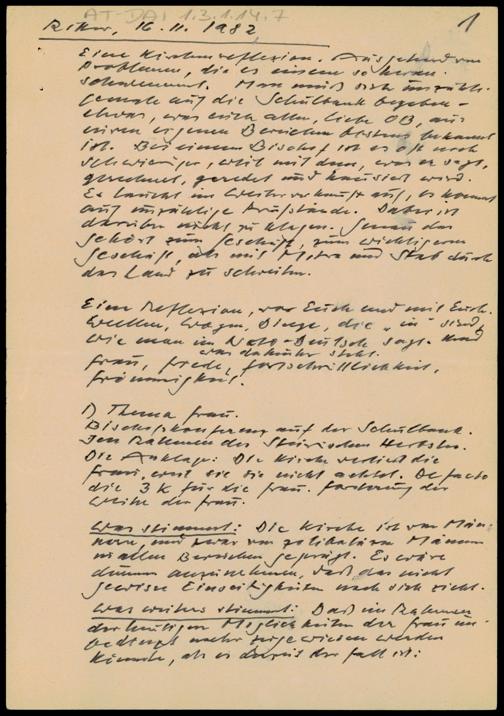 AT-DAI 1.3.1.14.7
1
16.11.1982
Eine Kirchenreflexion. Ausgehend von
Problemen, die es einem so heran-
schwemmt. Man muß sich
gemale auf die Schulbank begeben –
etwas, was euch allen, liebe OB, aus
euren eigenen Bereichen bestens bekannt
ist. Bei einem Bischof ist es oft noch
schwieriger, weil mit dem, was er sagt,
gerechnet, geredet und wird.
Es taucht im auf, es kommt
auf unzählige Prüfstände. Dabei ist
darüber nicht zu klagen. Genau das
gehört zum Geschäft, zum wichtigeren
Geschäft, als mit Mitra und Stab durch
das Land zu schreiten.
Eine Reflexion, vor Euch und mit Euch.
Wellen, Wogen, Dinge, die „in“ sind,
wie man im Nato-Deutsch sagt. Und
was dahinter steht.
Frau, Friede, Fortschrittlichkeit,
Frömmigkeit.
1) Thema Frau.
Bischofskonferenz auf der Schulbank.
Im Rahmen des Steirischen Herbstes.
Die Anklage: Die Kirche verliert die
Frau, weil sie sie nicht achtet. De facto
die 3 K für die Frau. Forderung der
Weihe der Frau.
Was stimmt: Die Kirche ist von Män-
nern, und zwar von zölibatären Männern
in allen Bereichen geprägt. Es wäre
dumm anzunehmen, daß das nicht
gewisse Einseitigkeiten nach sich zieht.
Was weiters stimmt: Daß im Rahmen
der heutigen Möglichkeiten der Frau un-
bedingt mehr zugewiesen werden
könnte, als es derzeit der Fall ist: